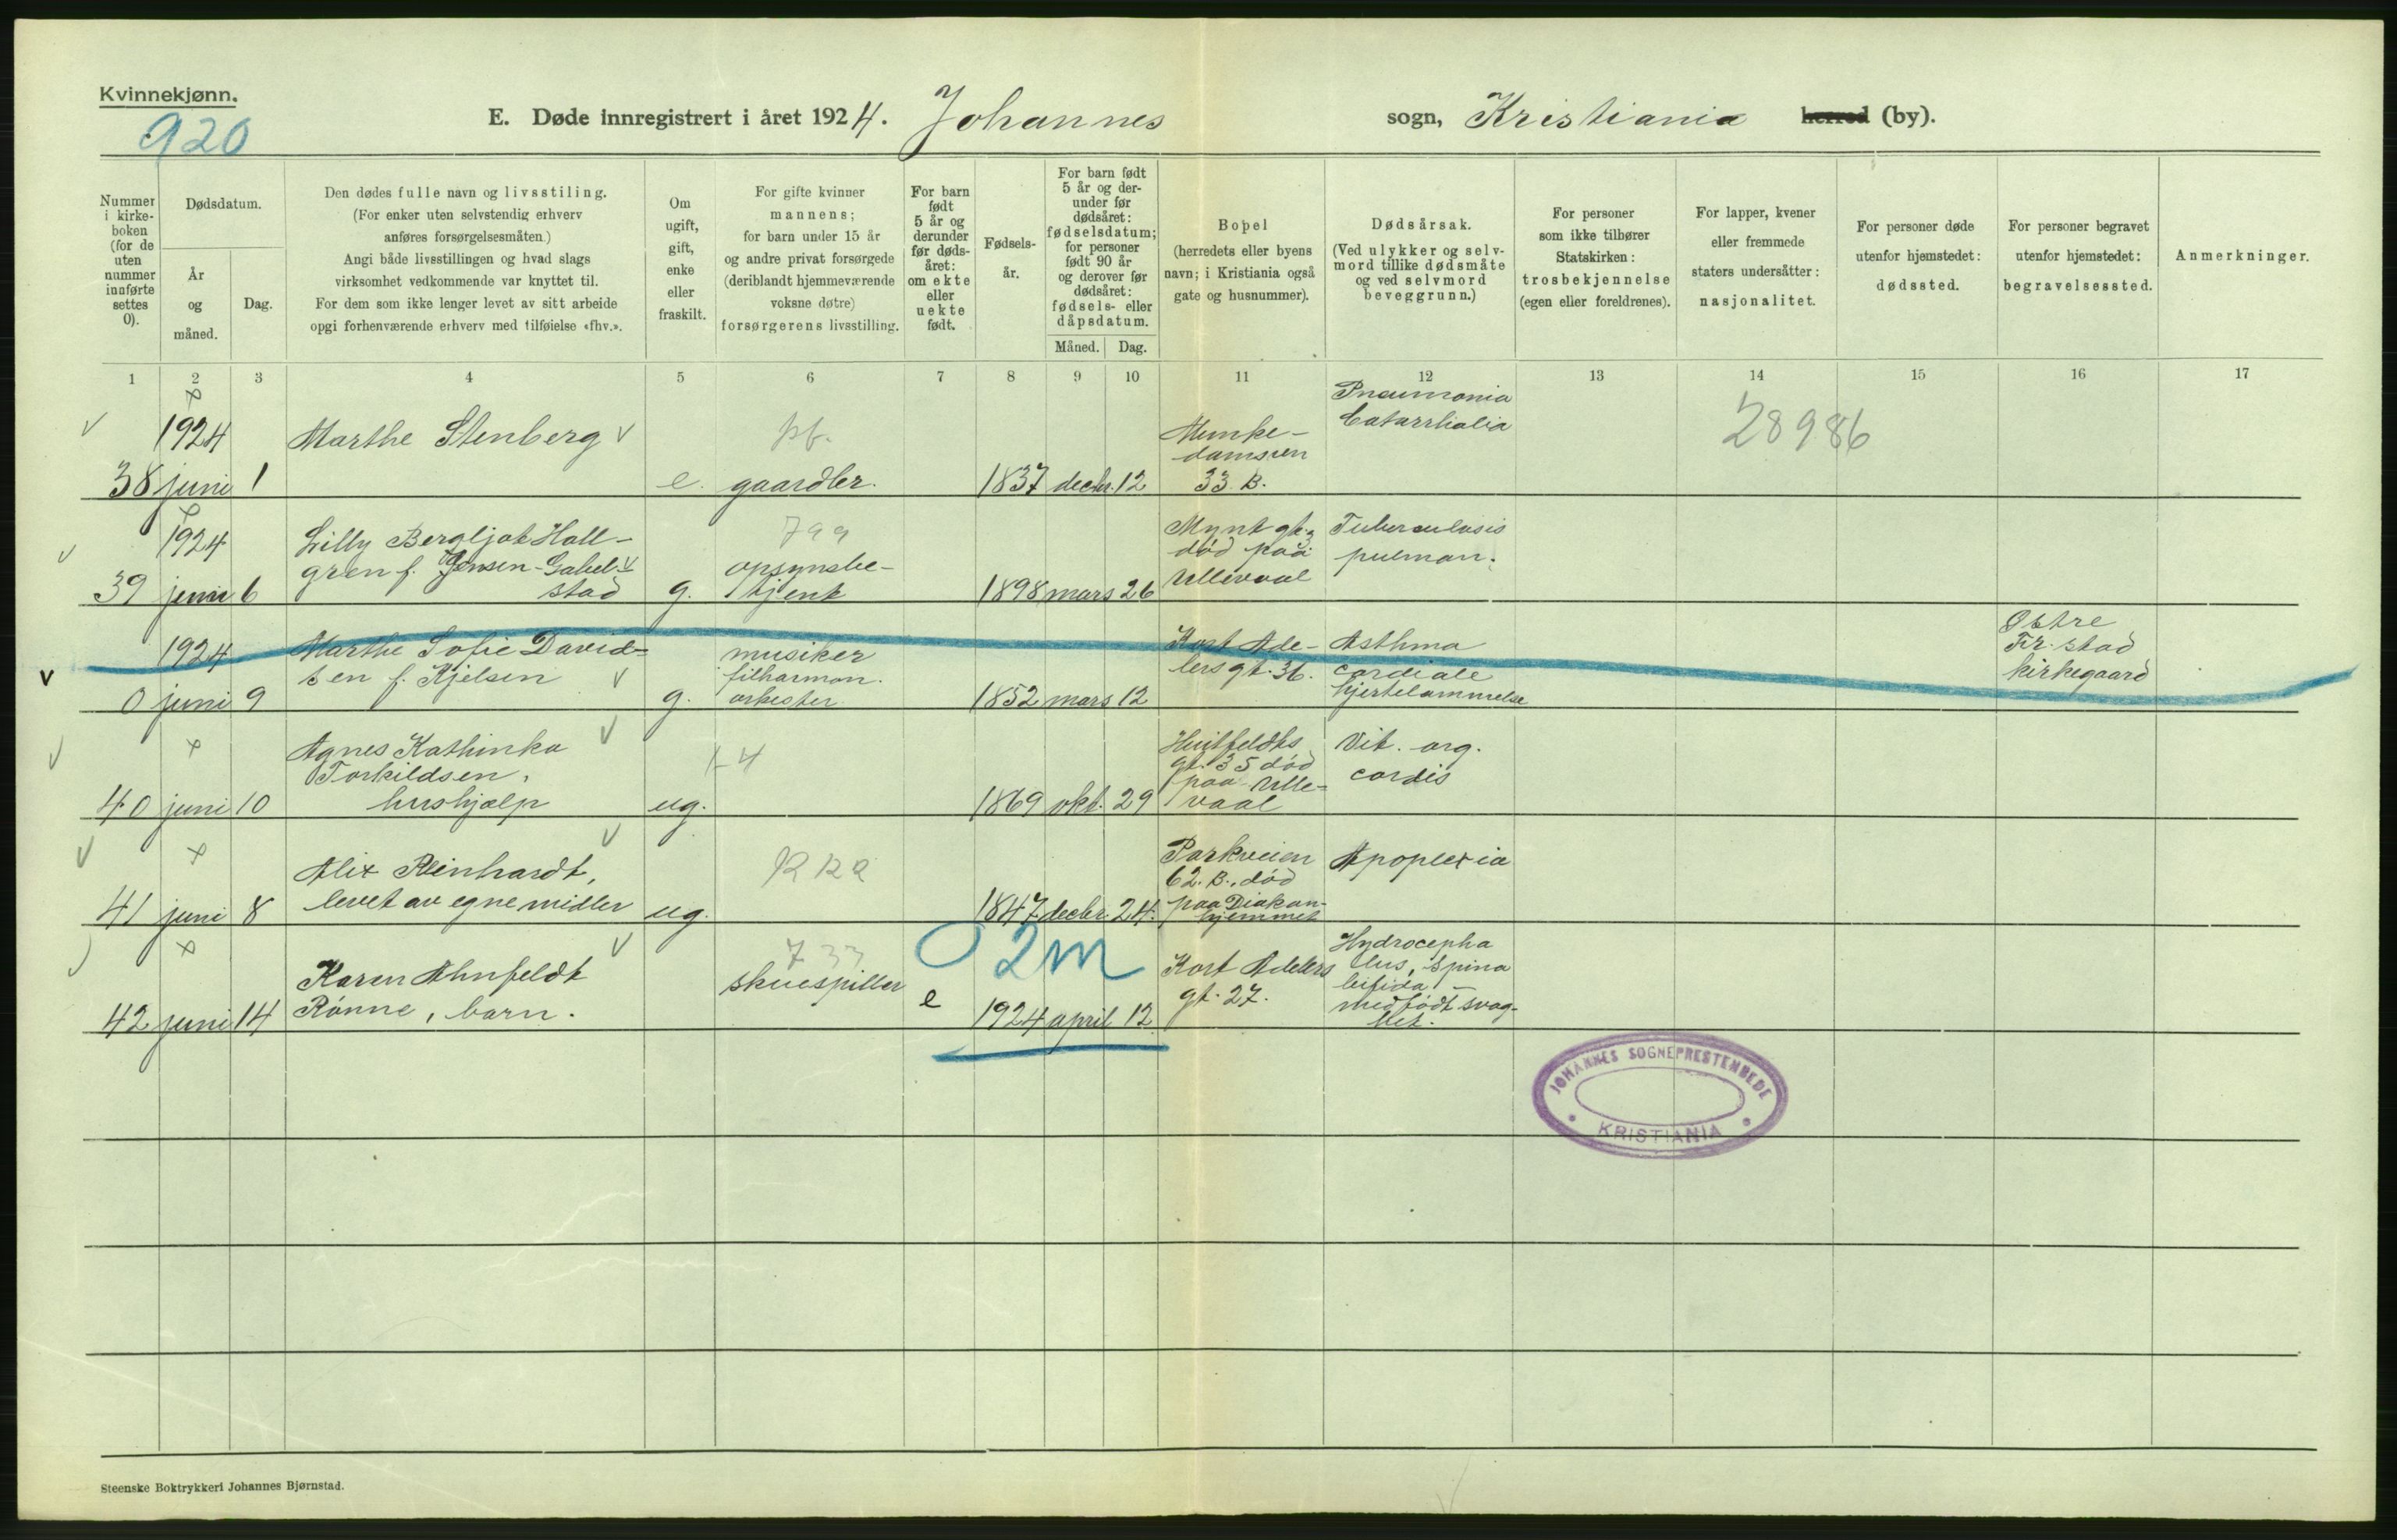 Kvinnekjønn.
920
E. Døde innregistrert i året 1924. Johannes sogn, Kristiania herred (by).
Nummer i kirke-boken (for de uten nummer innførte settes 0).
Dødsdatum.
År og måned.
Dag.
Den dødes fulle navn og livsstiling.
(For enker uten selvstendig erhverv
anføres forsørgelsesmåten.)
Angi både livsstillingen og hvad slags
virksomhet vedkommende var knyttet til.
For dem som ikke lenger levet av sitt arbeide
opgi forhenværende erhverv med tilføielse «fhv.».
Om ugift, gift, enke eller fraskilt.
For gifte kvinner
mannens;
for barn under 15 år
og andre privat forsørgede
(deriblandt hjemmeværende
voksne døtre)
forsørgerens livsstilling.
For barn født 5 år og derunder før døds-året: om ekte eller uekte født.
Fødsels-år.
For barn født
5 år og der-
under før
dødsåret:
fødselsdatum;
for personer
født 90 år
og derover før
dødsåret:
fødsels- eller
dåpsdatum.
Måned. Dag.
Bopel
(herredets eller byens
navn; i Kristiania også
gate og husnummer).
Dødsårsak.
(Ved ulykker og selv-
mord tillike dødsmåte
og ved selvmord
beveggrunn.)
For personer
som ikke tilhører
Statskirken:
trosbekjennelse
(egen eller foreldrenes).
For lapper, kvener
eller fremmede
staters undersåtter:
nasjonalitet.
For personer døde
utenfor hjemstedet:
dødssted.
For personer begravet
utenfor hjemstedet:
begravelsessted.
Anmerkninger.
1 2 3 4 5 6 7 8 9 10 11 12 13 14 15 16 17
1924
38 juni 1
Marthe Stenberg
e.
gaardbr.
1837 decbr. 12
Munke-
damsvn
33 B.
Pneumonia
Catarrhalia
28986
1924
39 juni 6
Lilly Bergljot Hall-
gren f. Jensen-Gabel-
stad
g.
799
opsynsbe-
tjent
1898 mars 26
Mynt gt. 3
død paa
Ullevaal
Tuberculosis
pulmon.
1924
0 juni 9
Marthe Sofie David-
sen f. Kjelsen
g.
musiker
filharmon.
orkester
1852 mars 12
Kort Ade-
lers gt. 36.
Asthma
cordiale
hjertelammelse
Østre
Fr. stad
kirkegaard
40 juni 10
Agnes Kathinka
Torkildsen,
hushjælp
ug.
1869 okt. 29
Huitfeldts
gt. 35 død
paa Ulle-
vaal
Vit. org.
cordis
41 juni 8
Alix Reinhardt,
levet av egne midler
ug.
1847 decbr. 24.
Parkveien
62. B., død
paa Diakon-
hjemmet
Apoplexia
42 juni 14
Karen Ahnfeldt
Rønne, barn.
733
skuespiller
e
2m
1924 april 12
Kort Adelers
gt. 27.
Hydrocepha
lus, spina
bifida. -
medfødt svag-
het.
JOHANNES SOGNEPRESTEMBEDE
KRISTIANIA
Steenske Boktrykkeri Johannes Bjørnstad.